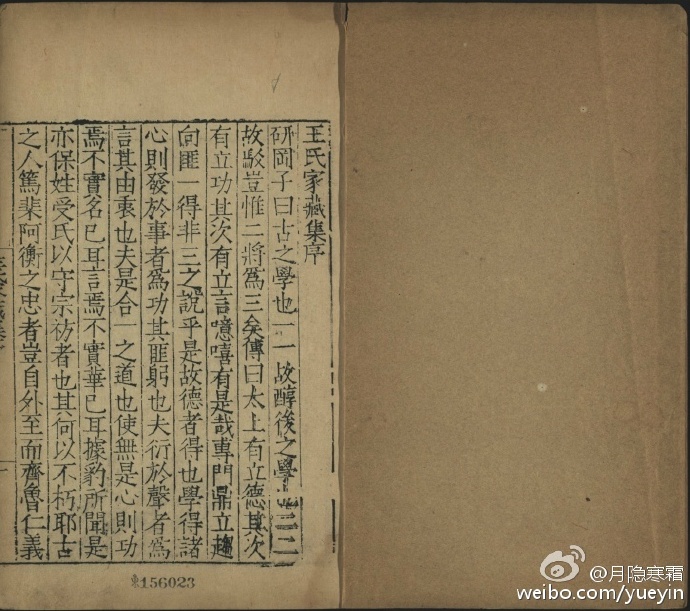 王氏家藏集序
研岡子曰古之學也一一故醇後之學也二二
故駁豈惟二將爲三矣傳曰太上有立德其次
有立功其次有立言噫嘻有是哉專門鼎立趨
向匪一得非三之說乎是故德者得也學得諸
心則發於事者爲功其匪躬也夫衍於聲者爲
言其由衷也夫是合一之道也使無是心則功
焉不實名已耳言焉不實華已耳據豹所聞是
亦保姓受氏以守宗祊者也其何以不朽耶古
之人篤棐阿衡之忠者豈自外至而齊魯仁義
156023
@月隐寒霜
weibo.com/yueyin